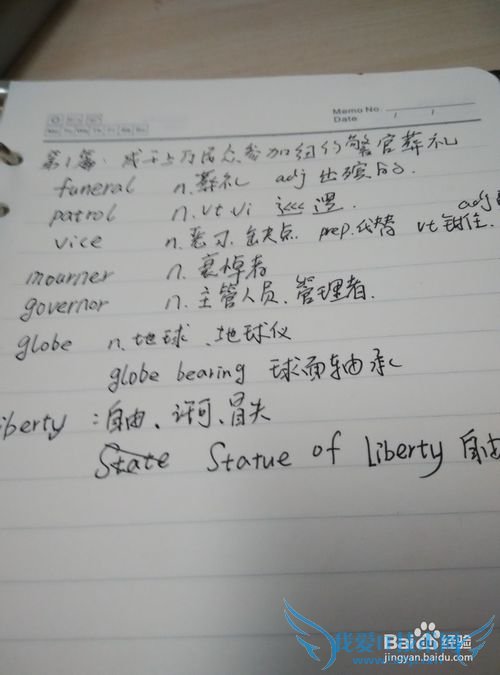 Memo No.
Date / /
第1篇:成千上万民众参加纽约警官葬礼
funeral n.葬礼 adj 出殡的
patrol n.vt.vi 巡逻.
vice n.恶习.缺点. prep.代替 vt 钳住. adj
mourner n.哀悼者
governor n.主管人员、管理者.
globe n.地球、地球仪
globe bearing 球面轴承
iberty :自由、许可、冒失
State Statue of Liberty 自由
Baidu经验
jingyan.baidu.com